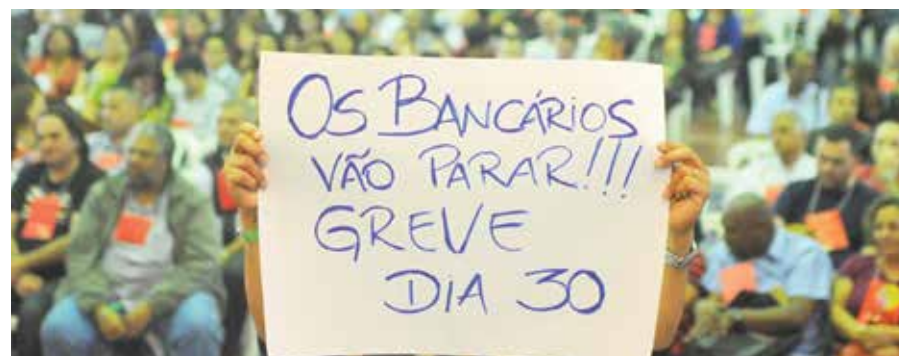 OS BANCÁRIOS
VÃO PARAR!!!
GREVE
DIA 30